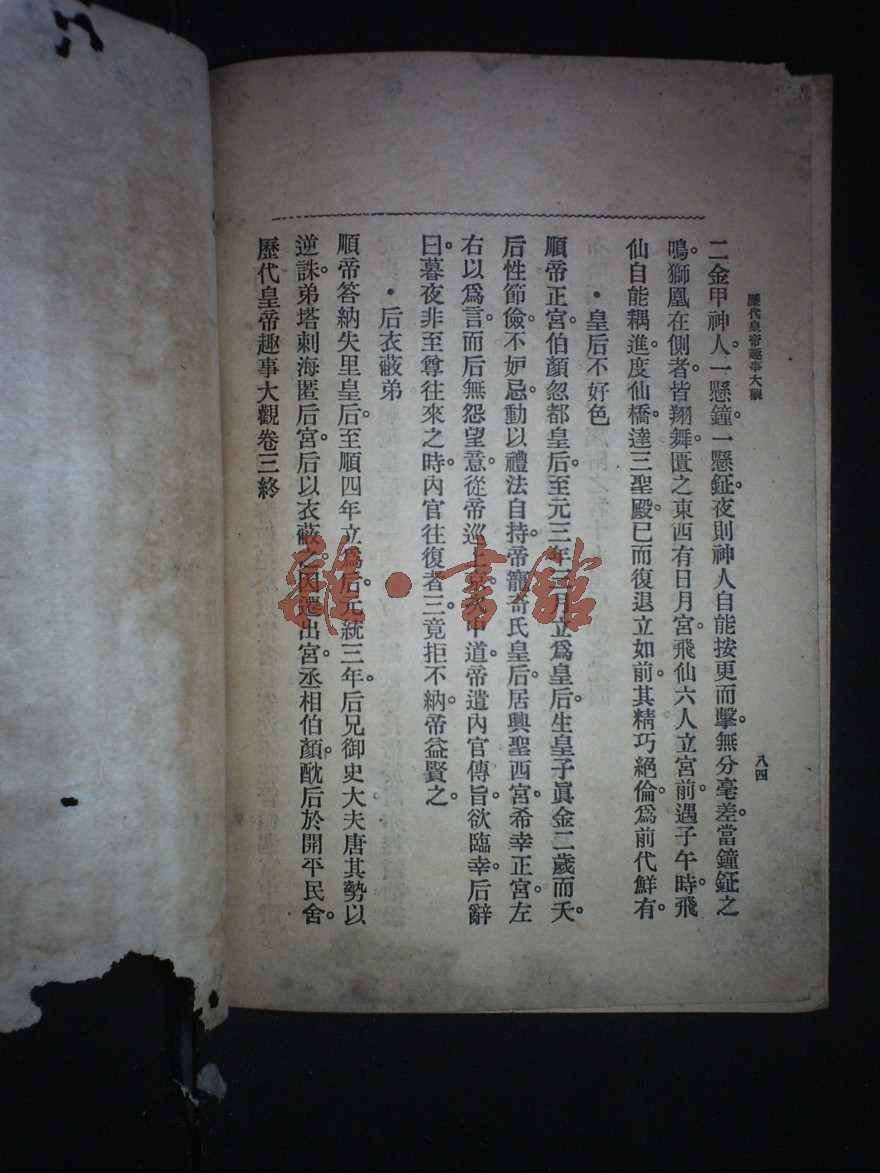 歷代皇帝趣事大觀
八四
二金甲神人。一懸鐘。一懸鉦。夜則神人自能按更而擊。無分毫差。當鐘鉦之
鳴。獅鳳在側者。皆翔舞。匱之東西有日月宮。飛仙六人立宮前。遇子午時。飛
仙自能耦進。度仙橋。達三聖殿。已而復退立如前。其精巧絕倫。爲前代鮮有。
•皇后不好色
順帝正宮伯顏忽都皇后。至元三年三月立爲皇后。生皇子眞金。二歲而夭。
后性節儉。不妒忌。動以禮法自持。帝寵奇氏皇后。居興聖西宮。希幸正宮。左
右以爲言。而后無怨望意。從帝巡上京。次中道。帝遣內官傳旨。欲臨幸。后辭
曰。暮夜非至尊往來之時。內官往復者三。竟拒不納。帝益賢之。
•后衣蔽弟
順帝答納失里皇后。至順四年立爲后。元統三年。后兄御史大夫唐其勢以
逆誅。弟塔剌海匿后宮。后以衣蔽之。因遷出宮。丞相伯顏酖后於開平民舍。
歷代皇帝趣事大觀卷三終
雜•書館